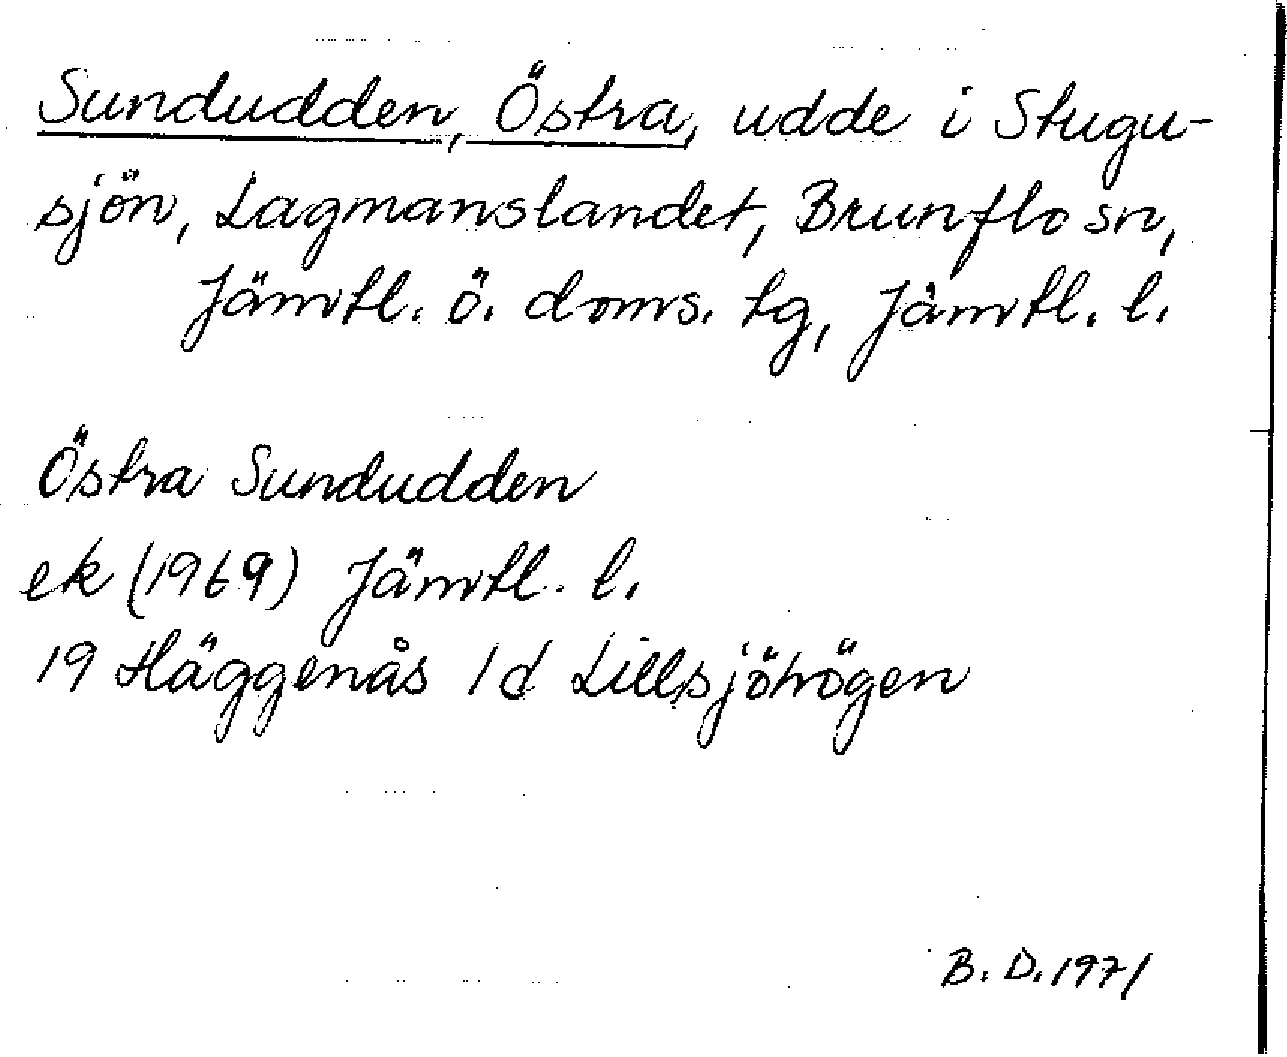 Sundudden, Östra, udde i Stugu-
sjön, Lagmanslandet, Brunflo sn,
Jämtl. ö. doms. tg, Jämtl. l.
Östra Sundudden
ek (1969) Jämtl. l.
19 Häggenås 1d Lillsjöhögen
B. D. 1971